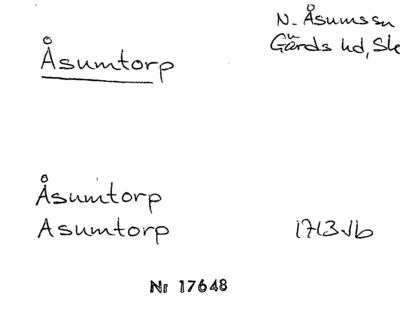 N. Åsumssn
Åsumtorp
Gärds hd, Sk
Åsumtorp
Asumtorp 1713 Jb
Nr 17648